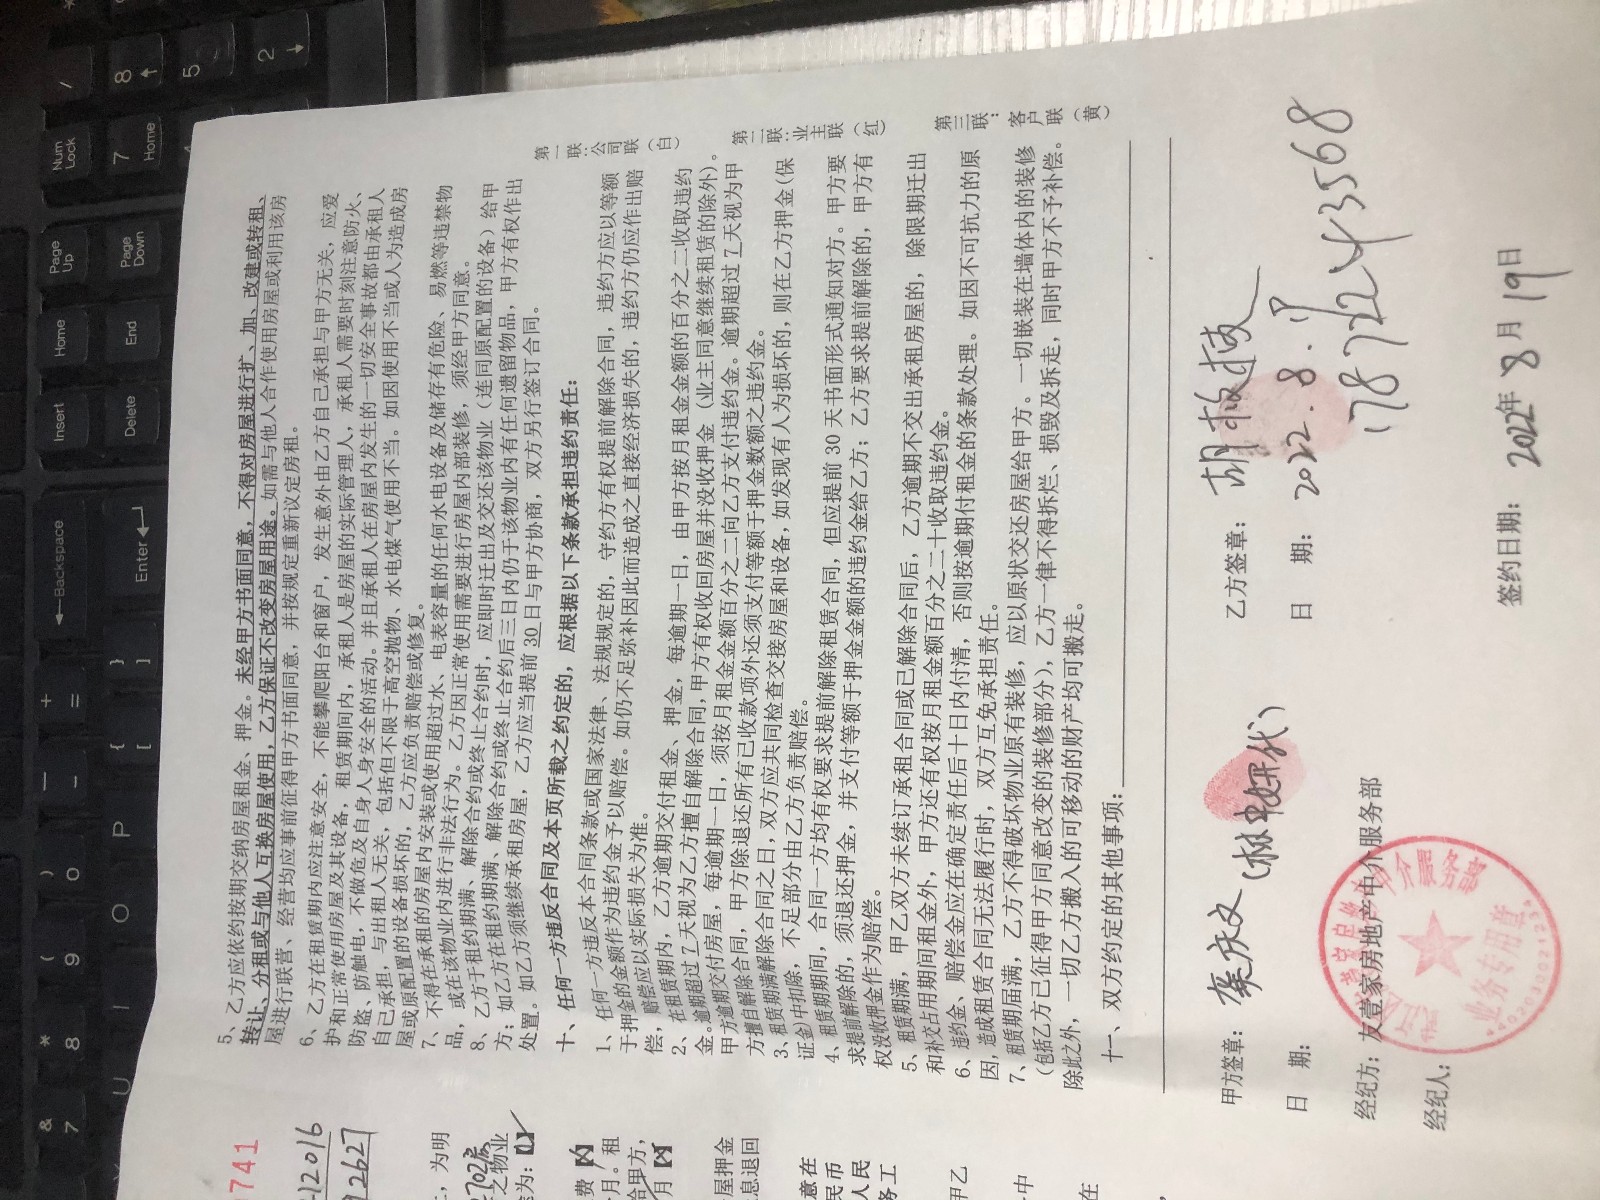 5、乙方应依约按期交纳房屋租金、押金。未经甲方书面同意，不得对房屋进行扩、加、改建或转租、
转让、分租或与他人互换房屋使用，乙方保证不改变房屋用途。如需与他人合作使用房屋或利用该房
屋进行联营、经营均应事前征得甲方书面同意，并按规定重新议定房租。
6、乙方在租赁期内应注意安全，不能攀爬阳台和窗户，发生意外由乙方自己承担与甲方无关，应爱
护和正常使用房屋及其设备，租赁期间内，承租人是房屋的实际管理人，承租人需要时刻注意防火、
防盗、防触电，不做危及自身人身安全的活动。并且承租人在房屋内发生的一切安全事故都由承租人
自己承担，与出租人无关，包括但不限于高空抛物、水电煤气使用不当。如因使用不当或人为造成房
屋或原配置的设备损坏的，乙方应负责赔偿或修复。
7、不得在承租的房屋内安装或使用超过水、电表容量的任何水电设备及储存有危险、易燃等违禁物
品，或在该物业内进行非法行为。乙方因正常使用需要进行房屋内部装修，须经甲方同意。
8、乙方于租约期满、解除合约或终止合约时，应即时迁出及交还该物业（连同原配置的设备）给甲
方；如乙方在租约期满、解除合约或终止合约后三日内仍于该物业内有任何遗留物品，甲方有权作出
处置。如乙方须继续承租房屋，乙方应当提前 30 日与甲方协商，双方另行签订合同。
十、任何一方违反合同及本页所载之约定的，应根据以下条款承担违约责任：
1、任何一方违反本合同条款或国家法律、法规规定的，守约方有权提前解除合同，违约方应以等额
于押金的金额作为违约金予以赔偿。如仍不足弥补因此而造成之直接经济损失的，违约方仍应作出赔
偿，赔偿应以实际损失为准。
2、在租赁期内，乙方逾期交付租金、押金，每逾期一日，由甲方按月租金金额的百分之二收取违约
金。逾期超过 7 天视为乙方擅自解除合同，甲方有权收回房屋并没收押金（业主同意继续租赁的除外）。
甲方逾期交付房屋，每逾期一日，须按月租金金额百分之二向乙方支付违约金。逾期超过 7 天视为甲
方擅自解除合同，甲方除退还所有已收款项外还须支付等额于押金数额之违约金。
3、租赁期满解除合同之日，双方应共同检查交接房屋和设备，如发现有人为损坏的，则在乙方押金(保
证金)中扣除，不足部分由乙方负责赔偿。
4、租赁期期间，合同一方均有权要求提前解除租赁合同，但应提前 30 天书面形式通知对方。甲方要
求提前解除的，须退还押金，并支付等额于押金金额的违约金给乙方；乙方要求提前解除的，甲方有
权没收押金作为赔偿。
5、租赁期满，甲乙双方未续订承租合同或已解除合同后，乙方逾期不交出承租房屋的，除限期迁出
和补交占用期间租金外，甲方还有权按月租金额百分之二十收取违约金。
6、违约金、赔偿金应在确定责任后十日内付清，否则按逾期付租金的条款处理。如因不可抗力的原
因，造成租赁合同无法履行时，双方互免承担责任。
7、租赁期届满，乙方不得破坏物业原有装修，应以原状交还房屋给甲方。一切嵌装在墙体内的装修
（包括乙方已征得甲方同意改变的装修部分），乙方一律不得拆烂、损毁及拆走，同时甲方不予补偿。
除此之外，一切乙方搬入的可移动的财产均可搬走。
十一、双方约定的其他事项：
甲方签章：
日 期：
乙方签章：
日 期：2022.8.19
17872243568
经纪方：友壹家房地产中介服务部
经纪人：
签约日期：2022年 8月 19日
业务专用章
第一联：公司联（白）
第二联：业主联（红）
第三联：客户联（黄）
741
12016
12627
，为明
之物业
为：
费
月。租
给甲方，
月
屋押金
息退回
意在
民币
人民
务工
甲乙
中
在
Num Lock
Page Up
Page Down
Home
End
Insert
Delete
Backspace
Enter
7 Home
8
5
2
& 7
* 8
( 9
) 0
U I O P
{ [
} ]
+ =